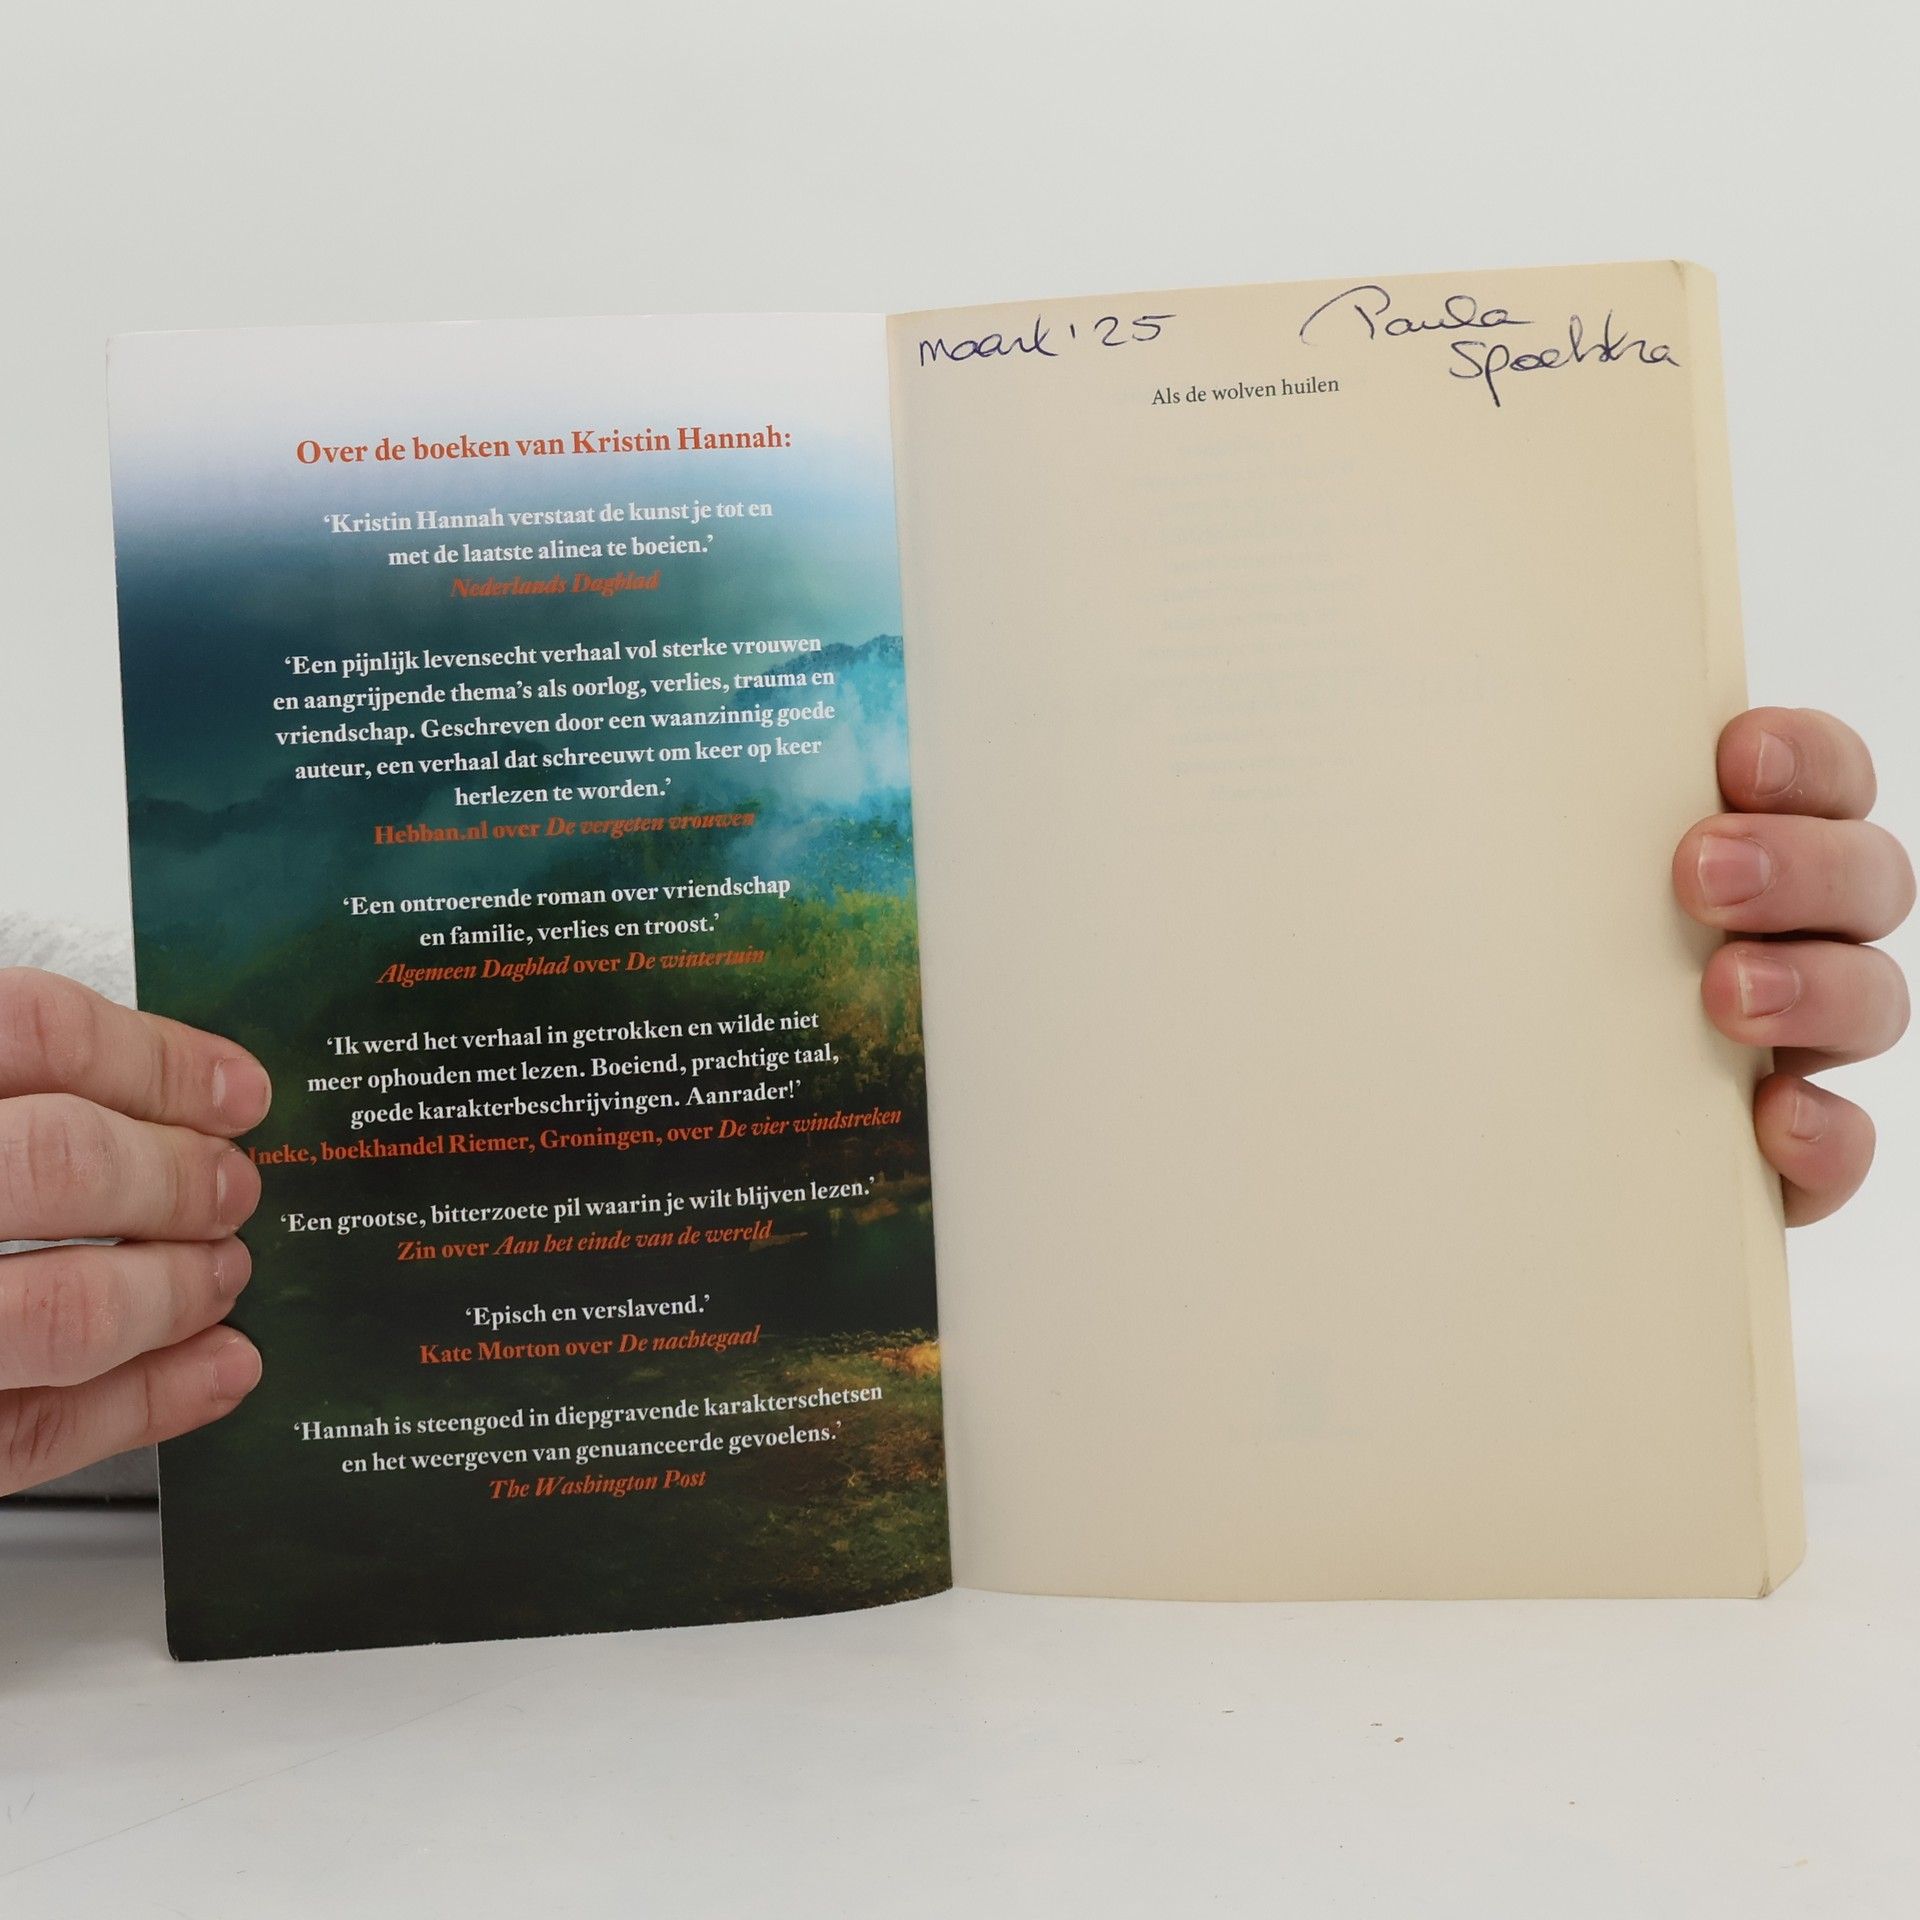 Over de boeken van Kristin Hannah:
‘Kristin Hannah verstaat de kunst je tot en
met de laatste alinea te boeien.’
Nederlands Dagblad
‘Een pijnlijk levensecht verhaal vol sterke vrouwen
en aangrijpende thema’s als oorlog, verlies, trauma en
vriendschap. Geschreven door een waanzinnig goede
auteur, een verhaal dat schreeuwt om keer op keer
herlezen te worden.’
Hebban.nl over De vergeten vrouwen
‘Een ontroerende roman over vriendschap
en familie, verlies en troost.’
Algemeen Dagblad over De wintertuin
‘Ik werd het verhaal in getrokken en wilde niet
meer ophouden met lezen. Boeiend, prachtige taal,
goede karakterbeschrijvingen. Aanrader!’
Ineke, boekhandel Riemer, Groningen, over De vier windstreken
‘Een grootse, bitterzoete pil waarin je wilt blijven lezen.’
Zin over Aan het einde van de wereld
‘Episch en verslavend.’
Kate Morton over De nachtegaal
‘Hannah is steengoed in diepgravende karakterschetsen
en het weergeven van genuanceerde gevoelens.’
The Washington Post
maart '25
Paula
Spoelstra
Als de wolven huilen